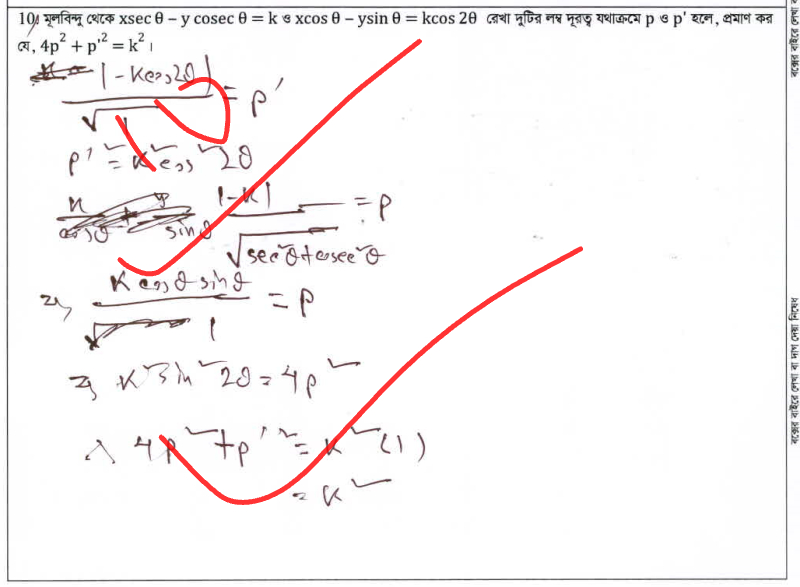 10। মূলবিন্দু থেকে xsec θ – y cosec θ = k ও xcos θ – ysin θ = kcos 2θ রেখা দুটির লম্ব দূরত্ব যথাক্রমে p ও p' হলে, প্রমাণ কর
যে, 4p² + p'² = k² ।
|-Kcos2θ| / √1 = p'
p'² = K²cos²2θ
|-K| / √sec²θ+cosec²θ = p
⇒, K cosθ sinθ / 1 = p
⇒ K²sin²2θ = 4p²
∴ 4p² + p'² = K² (1)
= K²
বক্সের বাইরে লেখা বা দাগ দেয়া নিষেধ